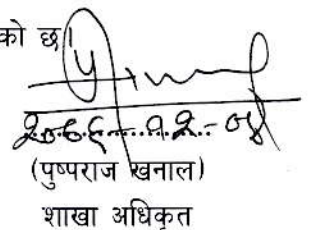 को छ।
२०६६-१२-०४
(पुष्पराज खनाल)
शाखा अधिकृत